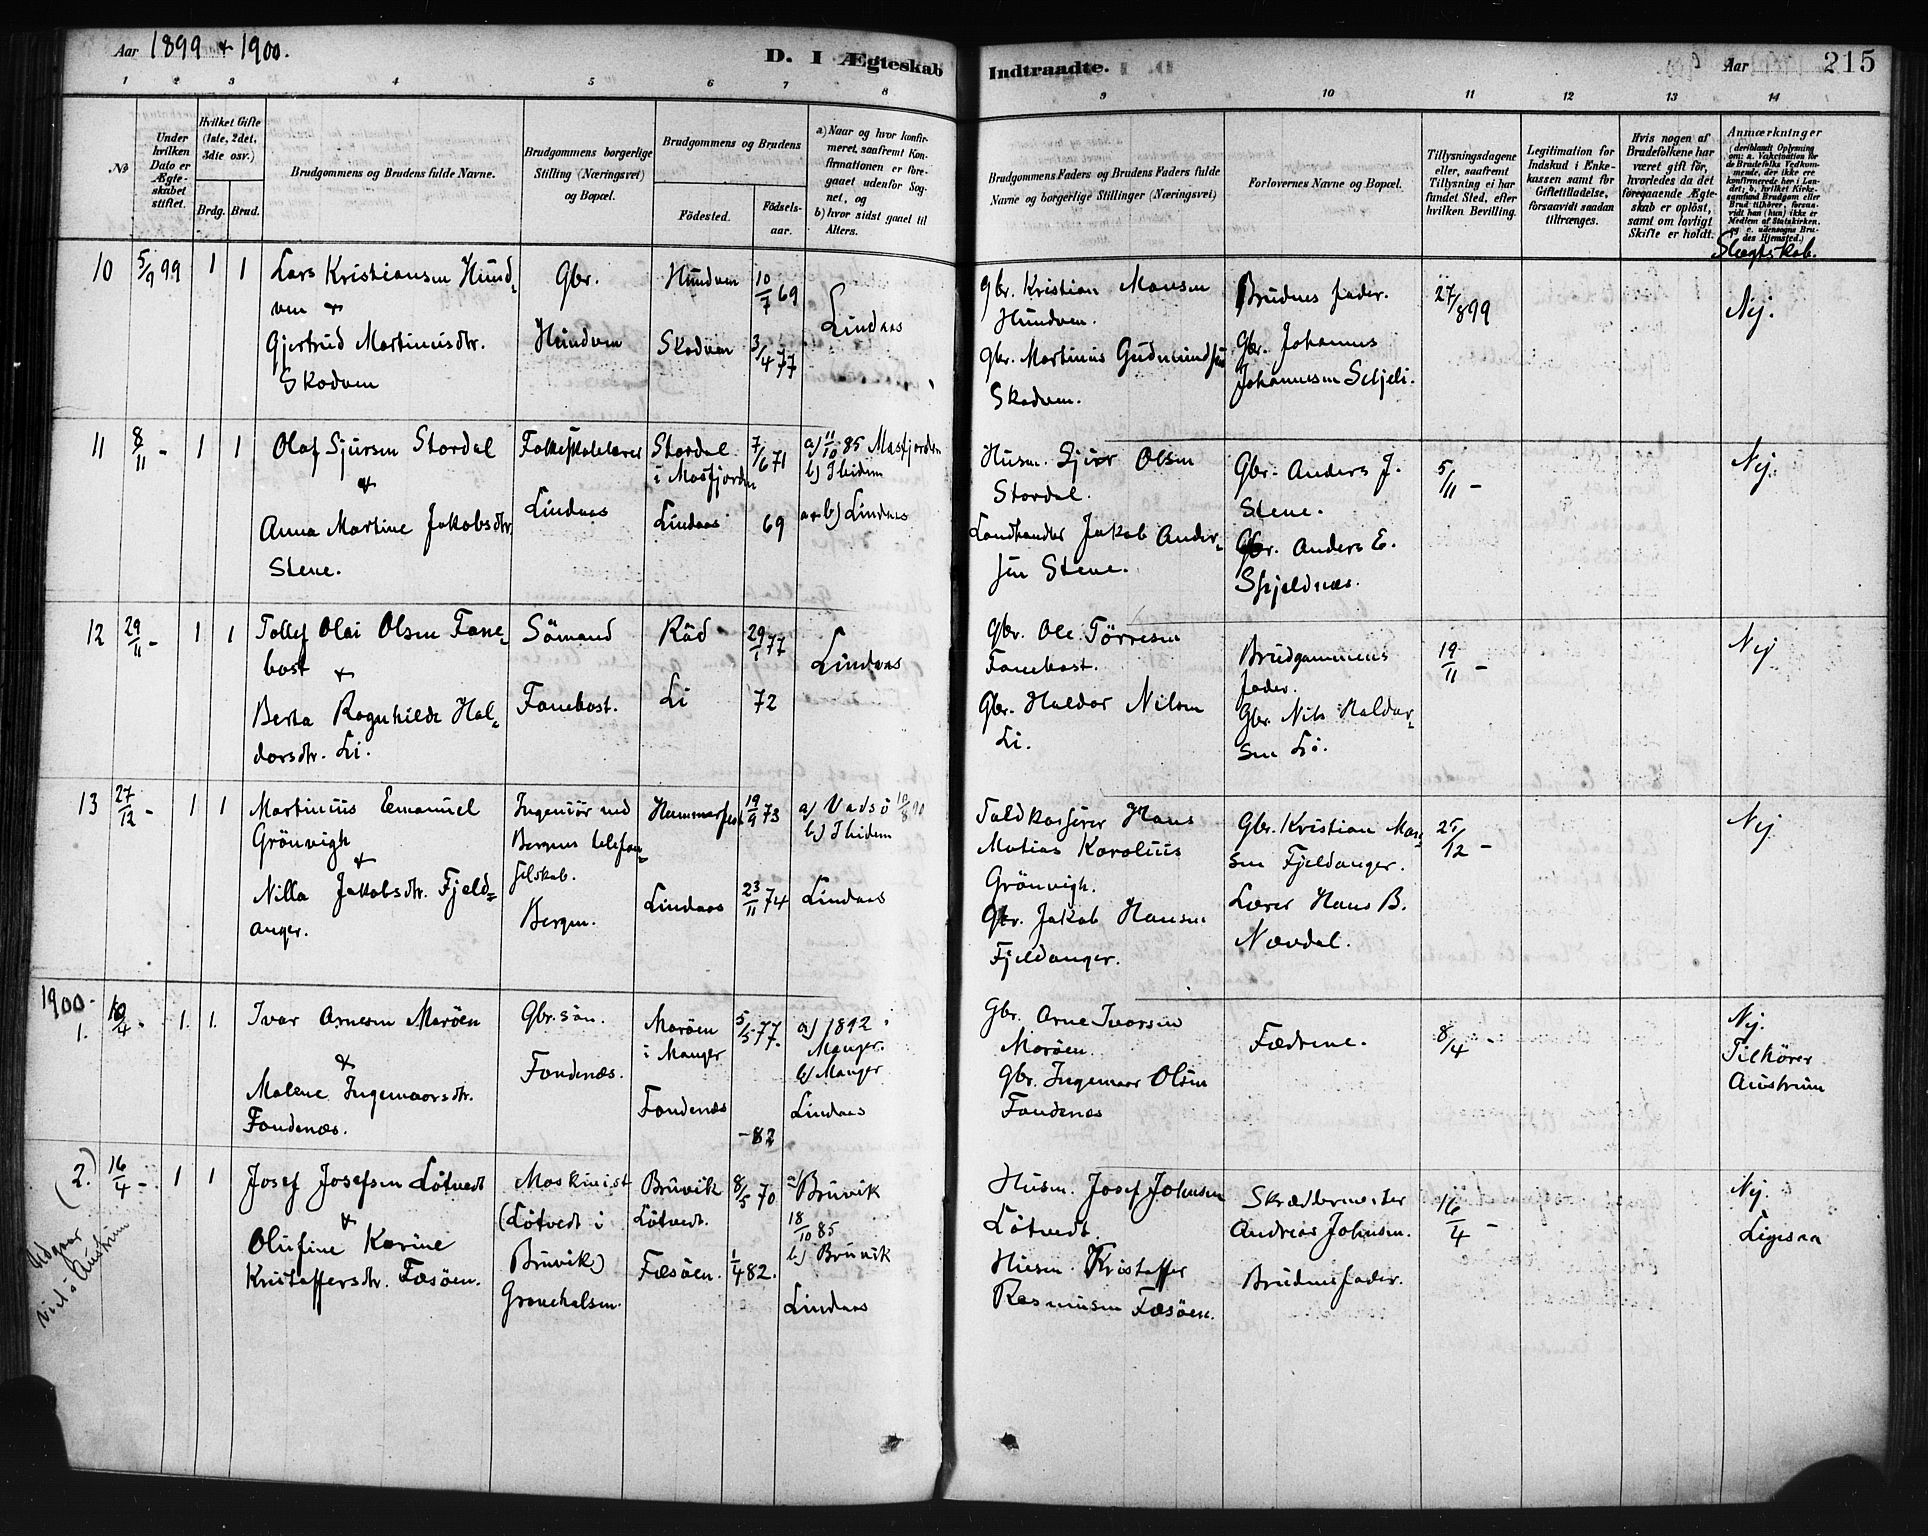 Aar 1899 + 1900.
D. I Ægteskab
Indtraadte.
Aar
215
1 2 3 4 5 6 7 8
9 10 11 12 13 14
No
Under hvilken Dato er Ægteskabet stiftet.
Hvilket Gifte (1ste, 2det, 3die osv.)
Brdg. Brud.
Brudgommens og Brudens fulde Navne.
Brudgommens borgerlige Stilling (Næringsvei) og Bopæl.
Brudgommens og Brudens
Fødested.
Fødselsaar.
a) Naar og hvor konfirmeret, saafremt Konfirmationen er foregaaet udenfor Sognet, og
b) hvor sidst gaaet til Alters.
Brudgommens Faders og Brudens Faders fulde Navne og borgerlige Stillinger (Næringsvei)
Forlovernes Navne og Bopæl.
Tillysningsdagene eller, saafremt Tillysning ei har fundet Sted, efter hvilken Bevilling.
Legitimation for Indskud i Enkekassen samt for Giftetilladelse, forsaavidt saadan tiltrænges.
Hvis nogen af Brudefolkene har været gift før, hvorledes da det foregaaende Ægteskab er opløst, samt om lovligt Skifte er holdt.
Anmærkninger
(deriblandt Oplysning om: a. Vakcination for de Brudefolks Vedkommende, der ikke ere konfirmerede her i Landet; b. hvilket Kirkesamfund Brudgom eller Brud tilhører, forsaavidt han (hun) ikke er Medlem af Statskirken, og c. udensogns Brudes Hjemsted.)
Slegtskab.
10 5/9 99 1 1
Lars Kristiansen Hund-
ven +
Gjertrud Martinusdtr.
Skodven
Gbr.
Hundven
Hundven 10/7 69
Skodven 3/4 77
Lindaas
Gbr. Kristian Monsen
Hundven.
Gbr. Martinus Gudmundsen
Skodven.
Brudens fader.
Gbr. Johannes
Johannesen Seljeli.
27/8 99
Nej.
11 8/11 - 1 1
Olaf Sjursen Stordal
+
Anna Martine Jakobsdtr.
Stene.
Folkeskolelærer
Lindaas
Stordal
i Masfjorden 7/6 71
Lindaas 69
a) 11/10 85 Masfjorden
b) Ibidem
a + b) Lindaas
Husm. Sjur Olsen
Stordal.
Landhandler Jakob Ander-
sen Stene.
Gbr. Anders J.
Stene.
Gbr. Anders E.
Skjeldnæs.
5/11 -
Nej.
12 29/11 - 1 1
Tollef Olai Olsen Fane-
bost +
Berta Ragnhilde Hal-
dorsdtr. Li.
Sömand
Fanebost.
Råd 29/1 77
Li 72
Lindaas
Gbr. Ole Törresen
Fanebost.
Gbr. Haldor Nilsen
Li.
Brudgommens
fader.
Gbr. Nils Haldor-
sen Li.
19/11 -
Nej
13 27/12 - 1 1
Martinius Emanuel
Grönvigh
+
Nilla Jakobsdtr. Fjeld-
anger.
Ingeniör ved
Bergens telefon-
selskab.
Bergen.
Hammerfest 19/9 73
Lindaas 23/11 74
a) Vadsö 10/8 90
b) Ibidem
Lindaas
Toldkasserer Hans
Matias Karolius
Grönvigh.
Gbr. Jakob Hansen
Fjeldanger.
Gbr. Kristian Mon-
sen Fjeldanger.
Lærer Hans B.
Nævdal.
25/12 -
Nej
1900.
1. /4 - 1. 1.
Ivar Arnesen Maröen
+
Malene Ingemaorsdtr.
Fondenæs.
Gbr. sön.
Fondenæs.
Maröen
i Manger 5/5 77.
Fondenæs - 82
a) 1892 i
Manger.
b) Manger
Lindaas
Gbr. Arne Ivarsen
Maröen.
Gbr. Ingemaor Olsen
Fondenæs
Fædrene.
8/4 -
Nej.
Tilhörer
Austrum
(2.) 16/4 - 1 1
Josef Josefsen Lötvedt
+
Olufine Karine
Kristoffersdtr. Fæsöen.
Maskinist
(Lötvedt i
Bruvik)
Bruvik
Lötvedt. 8/5 70
Fæsöen. 1/4 82.
a) Bruvik
18/10 85
b) Bruvik
Lindaas
Husm. Josef Johnsen
Lötvedt.
Husm. Kristoffer
Rasmusen Fæsöen.
Skræddermester
Andreas Johnsen.
Brudens fader.
16/4 -
Nej.
Ligesaa
Udgaar
viet i Austrum